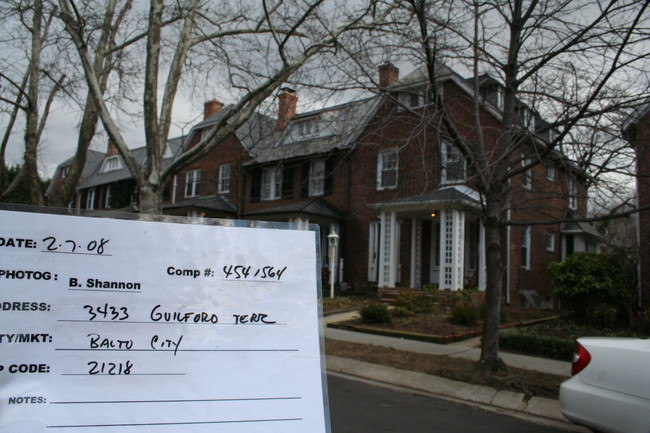 DATE: 2.7.08
PHOTOG: B. Shannon Comp #: 4541564
DDRESS: 3433 GUILFORD TERR
TY/MKT: BALTO CITY
P CODE: 21218
NOTES: